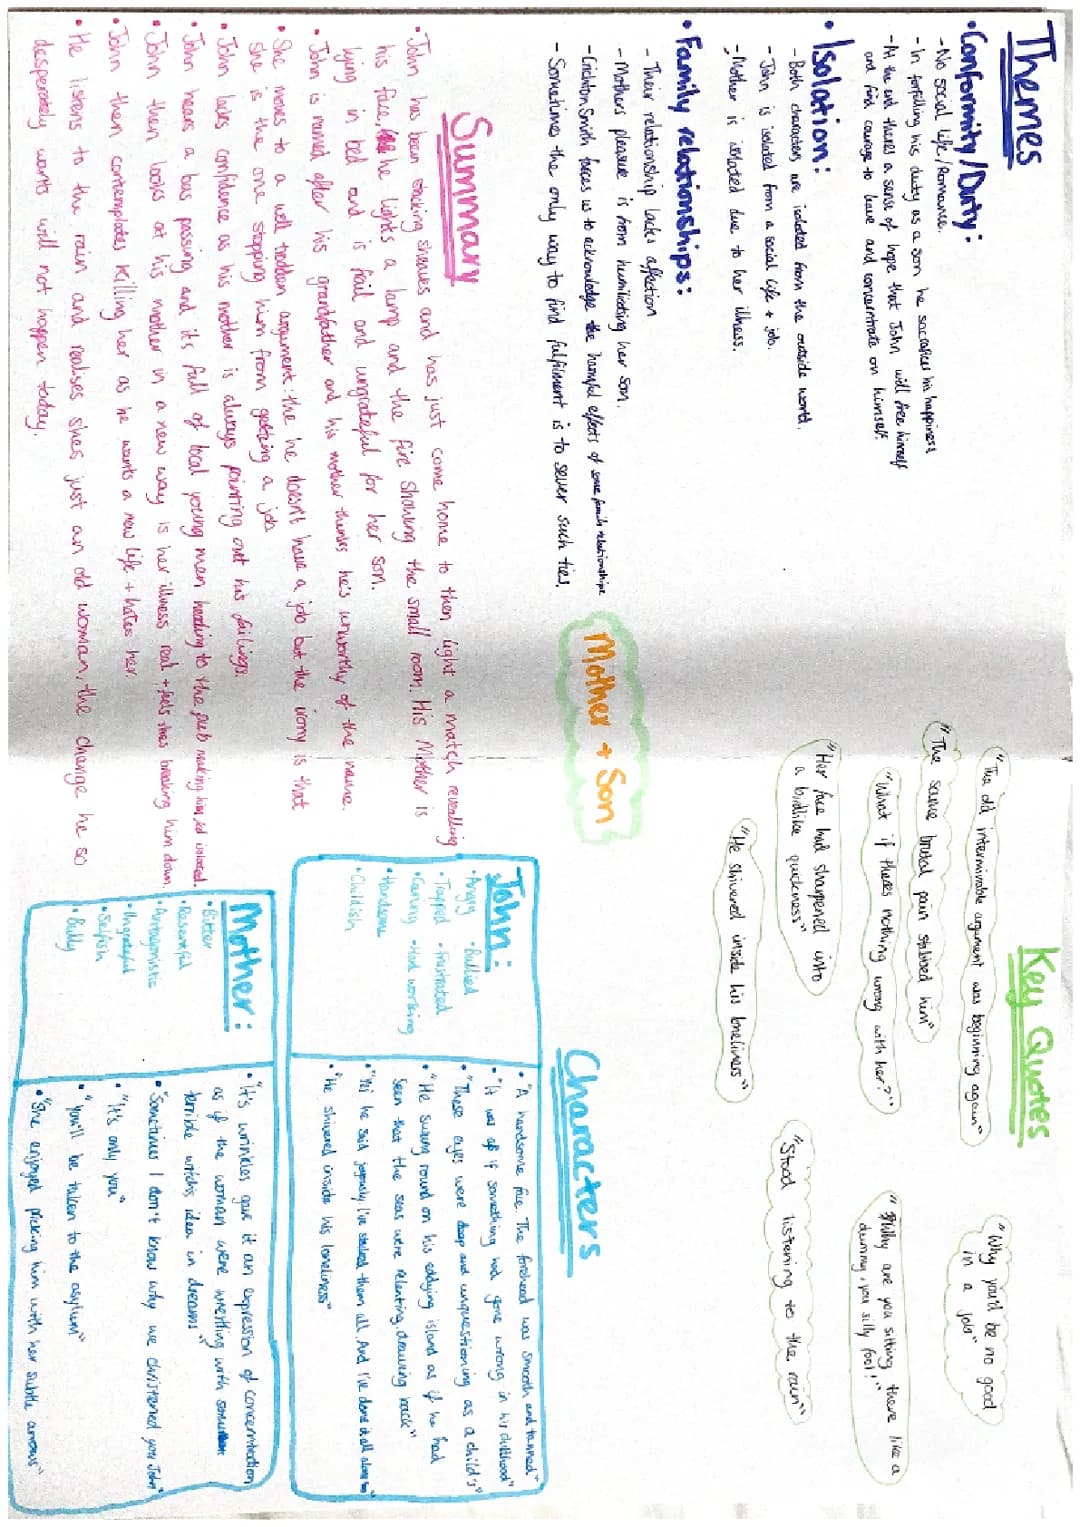 Themes
• Conformity/Duty:
- No social life/Romance.
- In forfilling his duty as a son he sacrafices his happiness
- At the end theres a sense of hope that John will free himself
and find courage to leave and concentrate on himself.
• Isolation:
- Both characters are isolated from the outside world.
- John is isolated from a social life + job.
- Mother is isolated due to her illness.
• Family relationships:
- Their relationship lacks affection
- Mothers pleasure is from humiliating her son.
- Crichton Smith forces us to acknowledge the harmful effects of some family relationships
- Sometimes the only way to find fulfilment is to sever such ties.
Mother + Son
Key Quotes
"The old interminable argument was beginning again"
"The same brutal pain stabbed him"
"What if theres nothing wrong with her?"
"Her face had sharpened into
a birdlike quickness"
"He shivered inside his loneliness"
"Why you'd be no good
in a job"
"Why are you sitting there like a
dummy, you silly fool!"
"Stood listening to the rain"
Summary
• John has been stacking sheaves and has just come home to then light a match revealling
his face, he lights a lamp and the fire showing the small room. His Mother is
lying in bed and is frail and ungrateful for her son.
• John is named after his grandfather and his mother thinks he's unworthy of the name.
• She moves to a well trodden argument: the he doesn't have a job but the irony is that
she is the one stopping him from getting a job
• John lacks confidence as his mother is always pointing out his failings.
• John hears a bus passing and its full of local young men heading to the pub making him isolated.
• John then looks at his mother in a new way is her illness real + feels shes breaking him down.
• John then contemplates killing her as he wants a new life + hates her.
• He listens to the rain and realises shes just an old woman, the change he so
desperately wants will not happen today.
Characters
John:
• Angry • Bullied
• Trapped • Frustrated
• Caring • Hard working
• Handsome
• Childish
• "A handsome face. The forehead was smooth and tanned"
• "It was as if something had gone wrong in his childhood"
• "These eyes were deep and unquestioning as a child's"
• "He swung round on his eddying island as if he had
seen that the seas were relenting, drawing back"
• "Yes he said joyously I've stacked them all. And I've done it all alone"
• "He shivered inside his loneliness"
Mother:
• Bitter
• Resentful
• Antagonistic
• Ungrateful
• Selfish
• Bully
• "It's wrinkles gave it an expression of concentration
as if the woman were wrestling with some
terrible witchs idea in dreams"
• "Sometimes I don't know why we christened you John"
• "It's only you"
• "You'll be taken to the asylum"
• "She enjoyed pricking him with her subtle arrows"